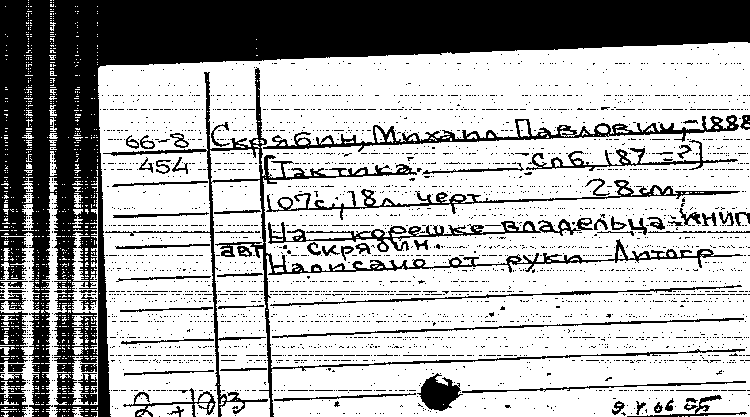 66-8 Скрябин, Михаил Павлович, -1888
454 [Тактика. Спб, 187-?]
107с., 18л. черт. 28см,
На корешке владельца книг
авт.: Скрябин.
Написано от руки Литогр